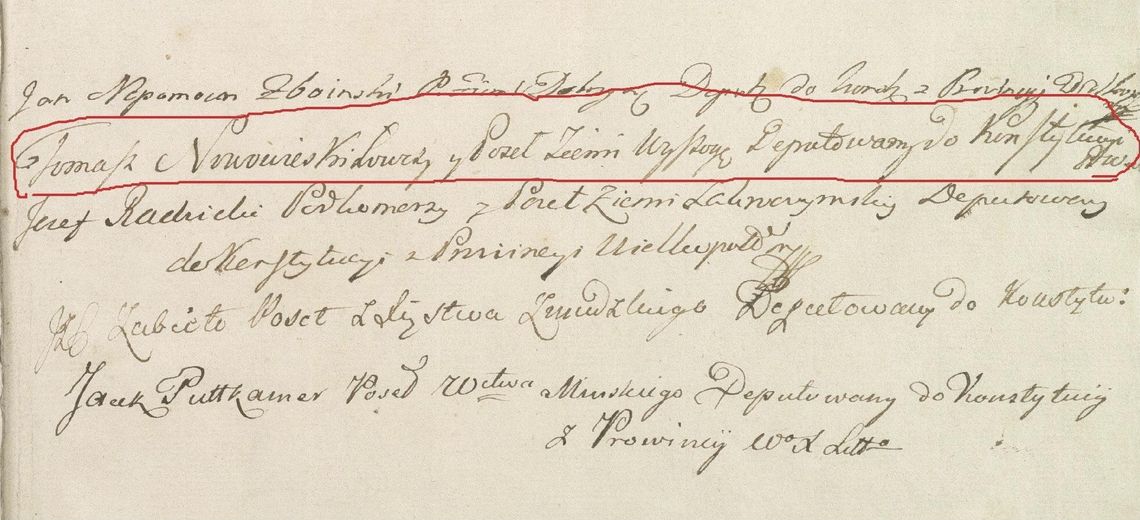 Jan Nepomucen Zboinski P. Ziemi Dobrzyń Deput do Konst z Prowincyi
Tomasz Nowowieski Łowczy y Poseł Ziemi Wyszog Deputowany do Konstytucyi
Jozef Radzicki Podkomorzy y Poseł Ziemi Zakroczymskiey Deputowany
do Konstytucyi z Prowincyi Wielkopol
Zabiełło Poseł z Xięstwa Zmudzkiego Deputowany do Konstytu:
Jacek Puttkamer Poseł Wdztwa Minskiego Deputowany do Konstytucij
z Prowincij Wo X Litto